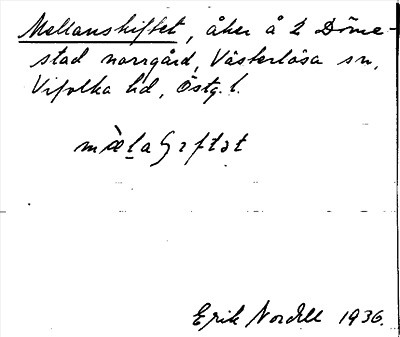 Mellanskiftet, åker å 2 Döme-
stad norrgård, Västerlösa sn,
Vifolka hd, Östg. l.
Erik Nordell 1936.